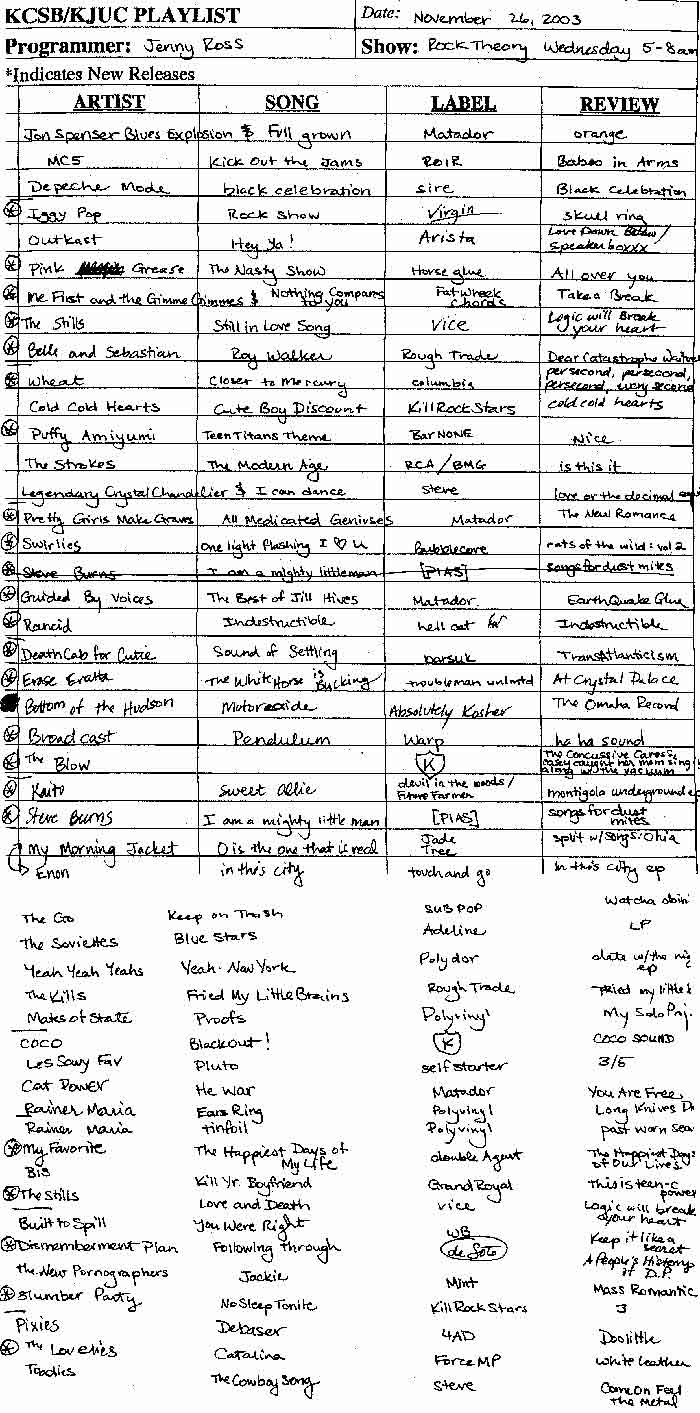 KCSB/KJUC PLAYLIST Date: November 26, 2003
Programmer: Jenny Ross Show: Rock Theory Wednesday 5-8am
*Indicates New Releases
ARTIST SONG LABEL REVIEW
Jon Spenser Blues Explosion & Full grown Matador orange
MC5 Kick Out the Jams ROIR Babes in Arms
Depeche Mode black celebration sire Black Celebration
* Iggy Pop Rock Show Virgin Skull ring
Outkast Hey Ya! Arista Love Down Below/ Speakerboxxx
* Pink Grease The Nasty Show Horseglue All over you
* Me First and the Gimme Gimmes & Nothing Compares to you Fat Wreck Chords Take a Break
* The Stills Still in Love Song Vice Logic will Break your heart
* Belle and Sebastian Roy Walker Rough Trade Dear Catastrophe
* Wheat Closer to Mercury columbia persecond, persecond, persecond, every second
Cold Cold Hearts Cute Boy Discount Kill Rock Stars cold cold hearts
* Puffy Amiyumi Teen Titans Theme Bar NONE Nice
The Strokes The Modern Age RCA/BMG is this it
Legendary Crystal Chandelier & I can dance Steve love or the decimal
* Pretty Girls Make Graves All Medicated Geniuses Matador The New Romance
* Swirlies One light flashing I ♡ U Bubblecore rats of the wild: vol 2
* Steve Burns I am a mighty little man [PIAS] songs for dust mites
* Guided By Voices The Best of Jill Hives Matador EarthQuake Glue
* Rancid Indestructible hell cat Indestructible
* Death Cab for Cutie Sound of Settling barsuk TransAtlanticism
* Erase Eratta The White Horse is Bucking troubleman unlmtd At Crystal Palace
Bottom of the Hudson Absolutely Kosher The Omaha Record
* Broadcast Pendulum Warp ha ha sound
* The Blow K The Concussive Caress, casey caught her mom sing along w/ the vacuum
* Kaito Sweet Allie devil in the woods/ Future Farmer montigola underground ep
* Steve Burns I am a mighty little man [PIAS] songs for dust mites
My Morning Jacket O is the one that is real Jade Tree split w/ Songs: Ohia
Enon in this city touch and go in this city ep
The Go Keep on Trash SUB POP Watcha doin'
The Soviettes Blue Stars Adeline LP
Yeah Yeah Yeahs Yeah. New York Polydor date w/ the ep
The Kills Fried My Little Brains Rough Trade fried my little
Mates of State Proofs Polyvinyl My Solo Proj.
COCO Blackout! K COCO SOUND
Les Savy Fav Pluto self starter 3/5
Cat Power He War Matador You Are Free
Rainer Maria Ears Ring Polyvinyl Long Knives
Rainer Maria tinfoil Polyvinyl past worn
* My Favorite The Happiest Days of My Life double Agent The Happiest Days of Our Lives
Bis Kill Yr. Boyfriend Grand Royal This is teen-c power
* The Stills Love and Death vice Logic will break your heart
Built to Spill You Were Right WB Keep it like a secret
* Dismemberment Plan Following through de Soto A People's History of D.P.
the New Pornographers Jackie Mint Mass Romantic
* Slumber Party No Sleep Tonite Kill Rock Stars 3
Pixies Debaser 4AD Doolittle
* The Lovelies Catalina Force MP White leather
Toadies The Cowboy Song Steve Come On Feel the Metal